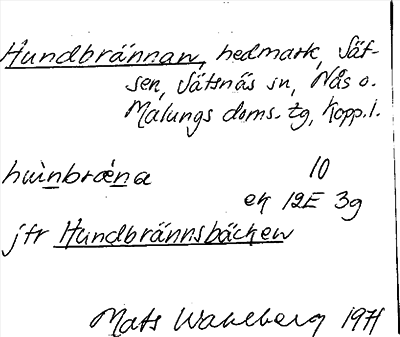 Hundbrännan, hedmark, Säf-
sen, Sättnäs sn, Nås o.
Malungs doms. tg, Kopp. l.
hùnbrǽna 10
ek 12E 3g
jfr Hundbrännsbäcken
Mats Wahlberg 1971